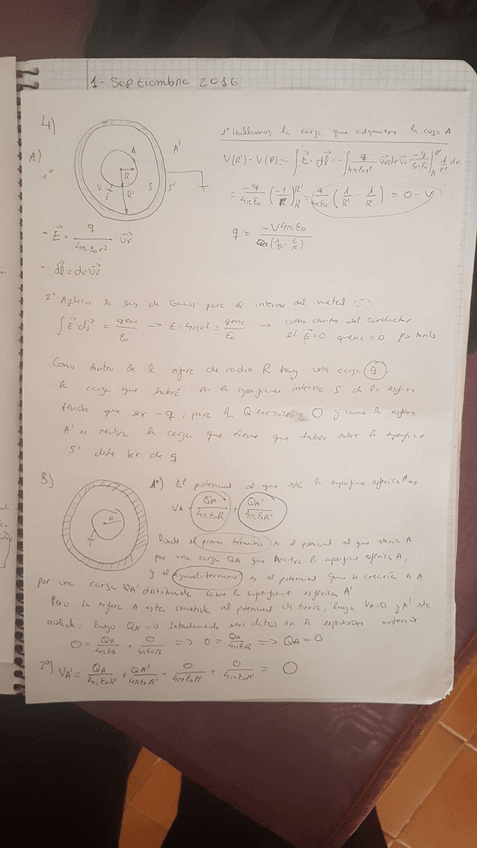 1- Septiembre 2016
4)
A)
1º
A
A'
R
V
S
S'
R'
1º Hallamos la carga que adquiere la carga A
V(R') - V(R) = - ∫ E · dl = - ∫ q/4πε₀r² ur dr ur = -q/4πε₀ ∫ 1/r² dr
= -q/4πε₀ (-1/R)R'R = q/4πε₀ (1/R' - 1/R) = 0 - V
- E = q/4πε₀r² · ur
q = -V4πε₀/(1/R' - 1/R)
- dl = dr ur
2º Aplico la ley de Gauss para el interior del metal
∫ E · ds = qenc/ε₀ → E · 4πr² = qenc/ε₀ → como dentro del conductor
el E=0 qenc = 0 Por tanto
Como dentro de la esfera de radio R hay una carga q
la carga que habrá en la superficie interna S de la esfera
tendra que ser -q, para la Q encerrada 0 y como la esfera
A' es neutra la carga que tiene que haber sobre la superficie
S' debe ser de q
B)
1º) El potencial al que está la superficie esférica A es
VA = QA/4πε₀R + QA'/4πε₀R'
Donde el primer término es el potencial al que estaría A
por una carga QA que tuviera la superficie esférica A,
y el segundo término es el potencial que se crearía en A
por una carga QA' distribuida sobre la superficie esférica A'
Pero la esfera A esta sometida al potencial de tierra, luego VA=0 y A' está
aislada, luego QA' = 0 sustituyendo estos datos en la expresión anterior
0 = QA/4πε₀R + 0/4πε₀R' ⇒ 0 = QA/4πε₀R ⇒ QA = 0
2º) VA' = QA/4πε₀R' + QA'/4πε₀R' = 0/4πε₀R' + 0/4πε₀R' = 0